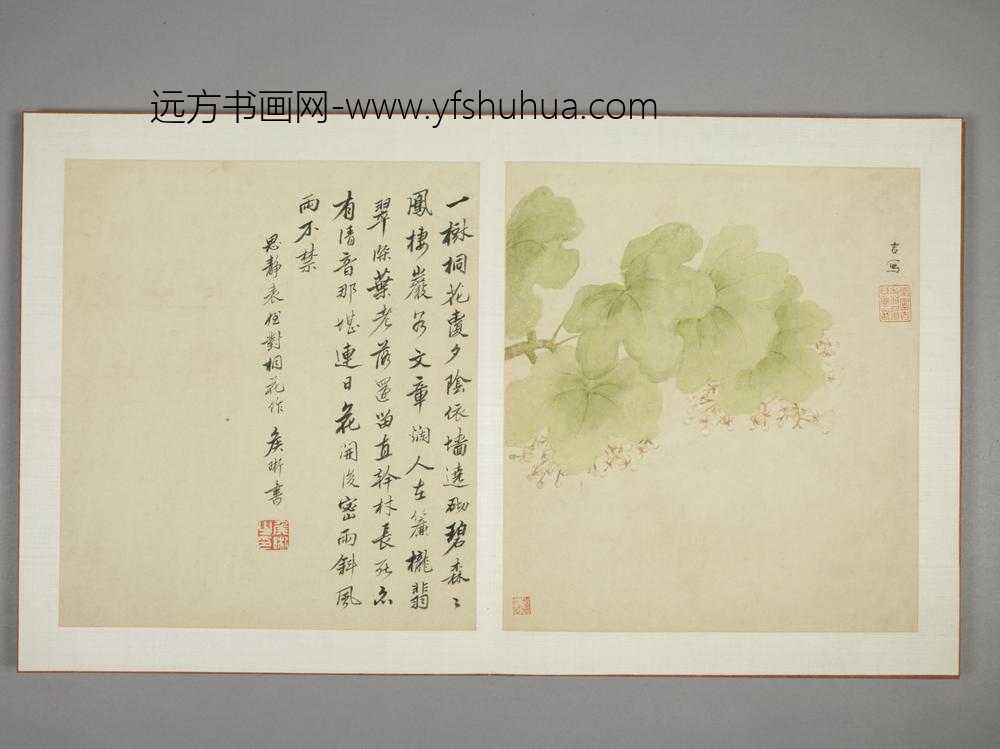 远方书画网-www.yfshuhua.com
吉寫
一樹桐花賣夕陰依墻遶砌碧森〻
鳳棲巖谷文章潤人在簾櫳翡
翠深葉老落還留直幹林長死亦
有清音那堪連日花開後密雨斜風
雨不禁
思靜表姪對桐花作 侯昕書